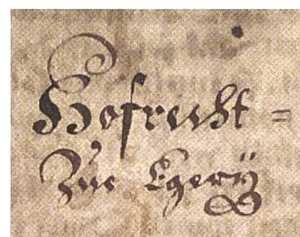 Hofrecht =
Zůe Egerÿ